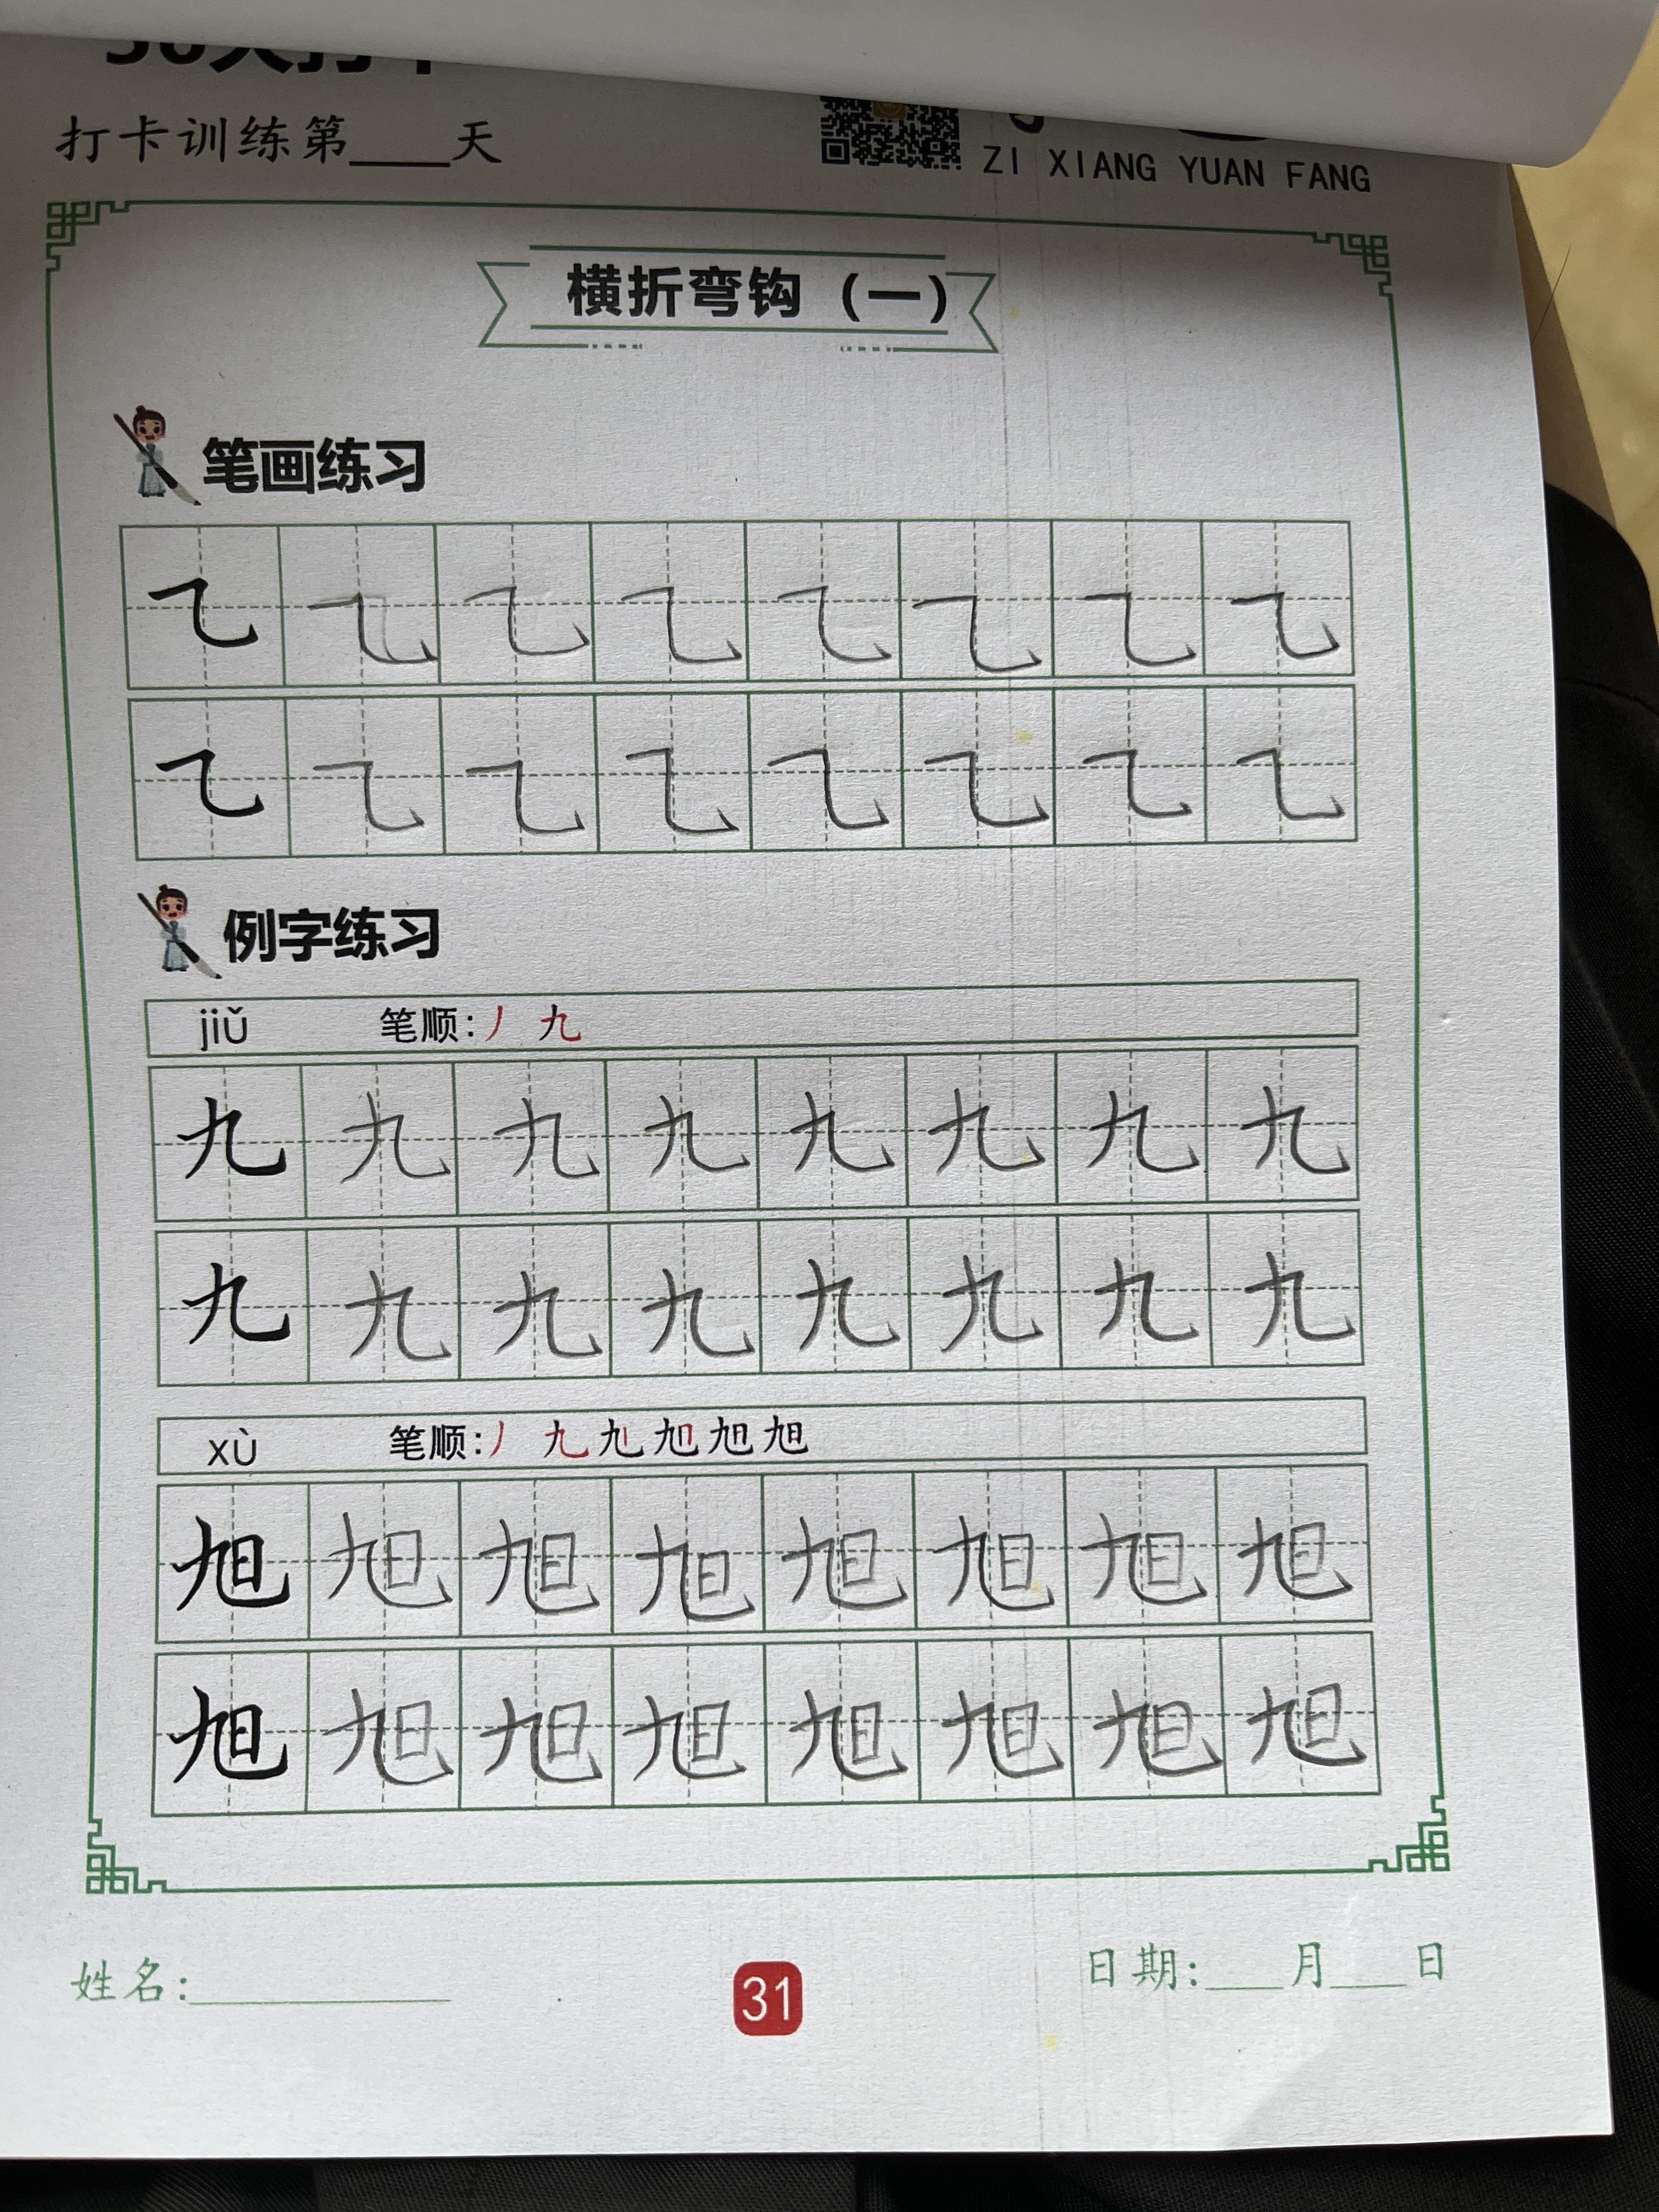 打卡训练第____天
ZI XIANG YUAN FANG
横折弯钩（一）
笔画练习
例字练习
jiǔ 笔顺:丿 九
九 九 九 九 九 九 九 九
九 九 九 九 九 九 九 九
xù 笔顺:丿 九
旭 旭 旭 旭 旭 旭 旭 旭
旭 旭 旭 旭 旭 旭 旭 旭
姓名:____________
31
日期:____月____日